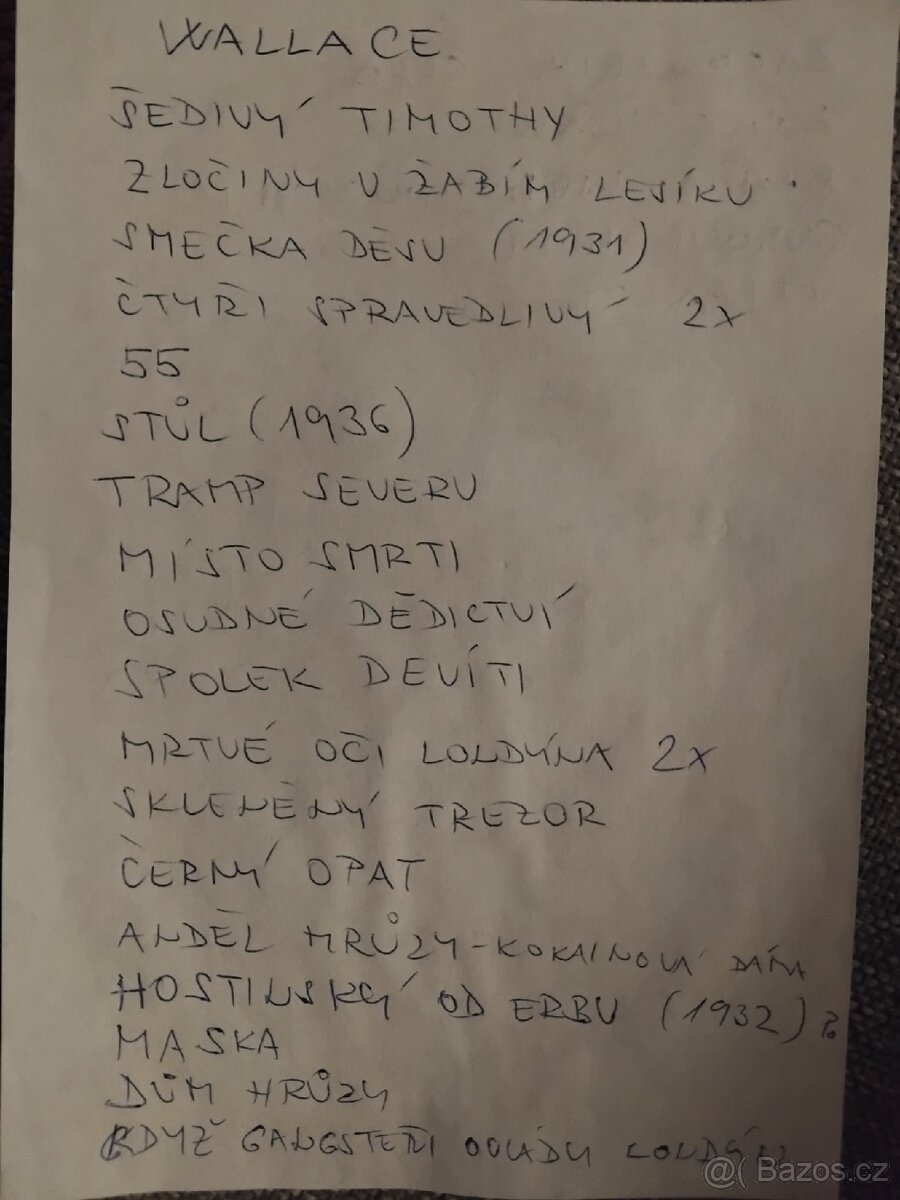 WALLACE.
ŠEDIVÝ TIMOTHY
ZLOČINY V ŽABÍM LESÍKU
SMEČKA DĚSU (1931)
ČTYŘI SPRAVEDLIVÝ 2x
55
STŮL (1936)
TRAMP SEVERU
MÍSTO SMRTI
OSUDNÉ DĚDICTVÍ
SPOLEK DEVÍTI
MRTVÉ OČI LONDÝNA 2x
SKLENĚNÝ TREZOR
ČERNÝ OPAT
ANDĚL HRŮZY - KOKAINOVÁ DÁMA
HOSTINSKÝ OD ERBU (1932)
MASKA
DŮM HRŮZY
KDYŽ GANGSTEŘI OVLÁDLI LONDÝN
@( Bazos.cz